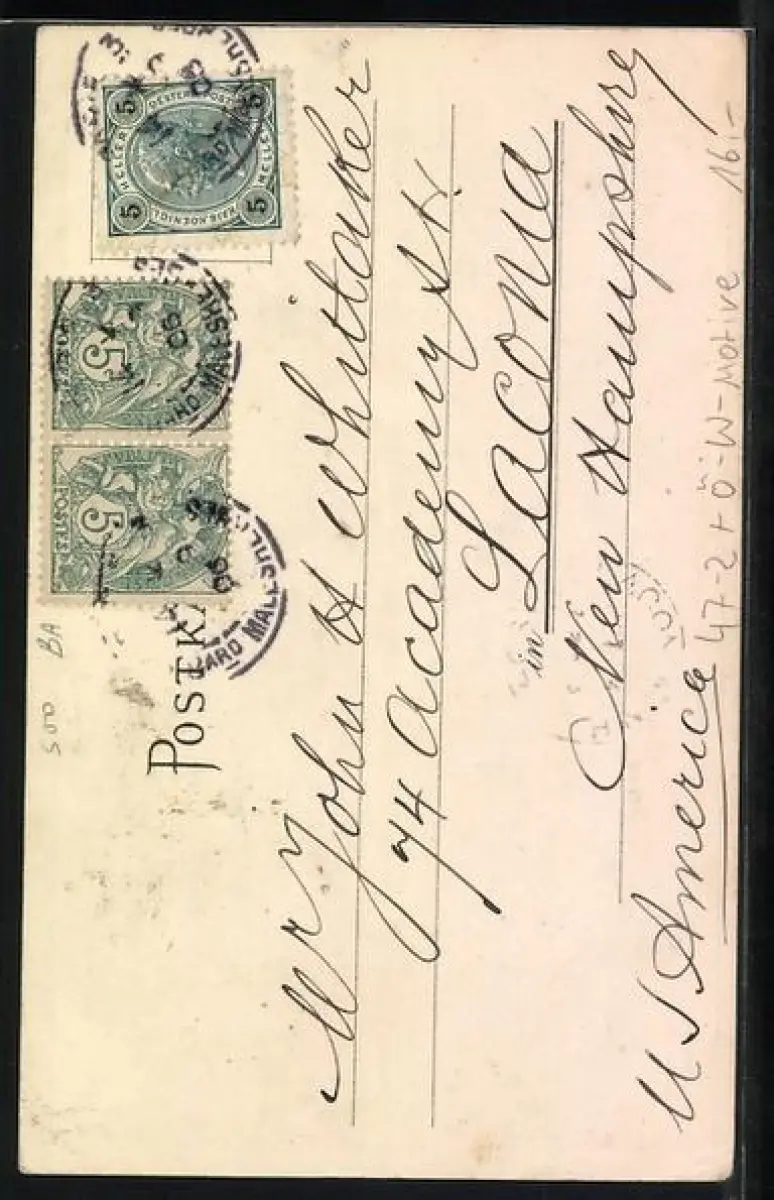 POSTKA
5 HELLER 5
OESTERR. POST
HELLER
KAIS. KOENIGL.
5 5
5
05
5
REPUBLI
POSTES
05
Mr John H Whittaker
74 Academy St.
in Laconia
New Hampshire
US America
500 BA
47-2 + Ö-W-Motive 16,-